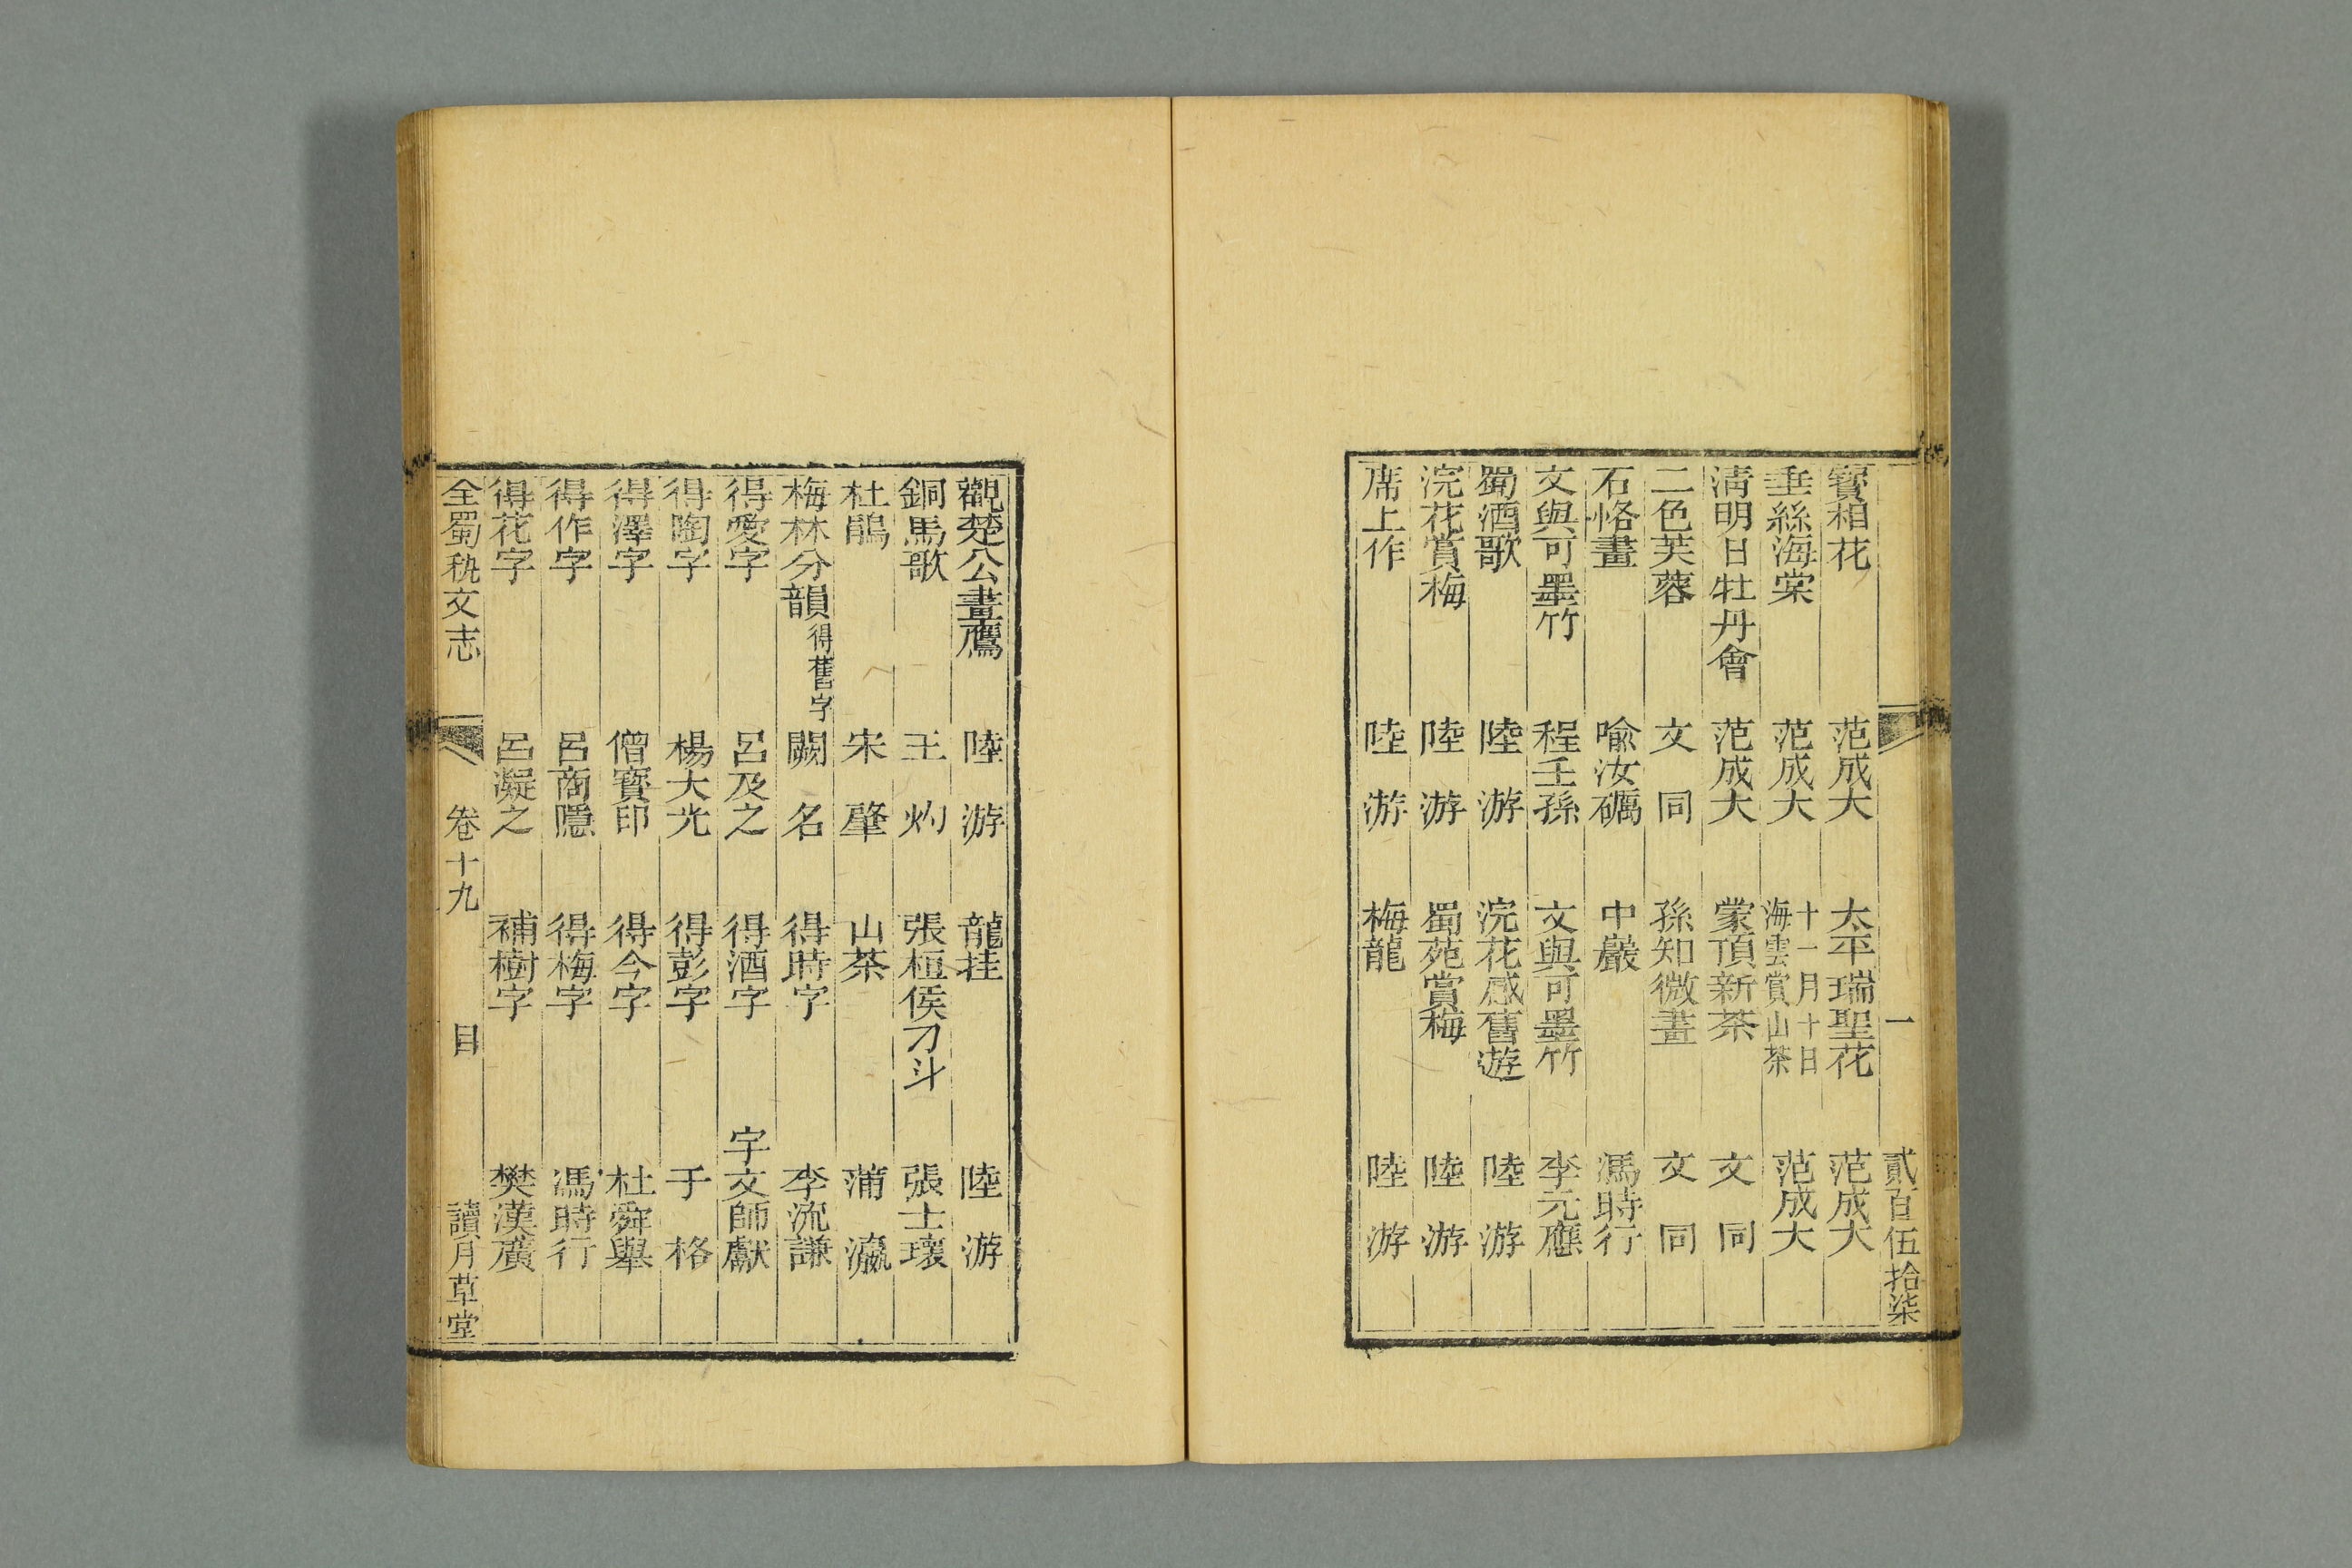 一 貳百伍拾柒
寶相花 范成大 太平瑞聖花 范成大
垂絲海棠 范成大 十一月十日海雲賞山茶 范成大
清明日牡丹會 范成大 蒙頂新茶 文同
二色芙蓉 文同 孫知微畫 文同
石恪畫 喻汝礪 中巖 馮時行
文與可墨竹 程壬孫 文與可墨竹 李元應
蜀酒歌 陸游 浣花感舊遊 陸游
浣花賞梅 陸游 蜀苑賞梅 陸游
席上作 陸游 梅龍 陸游
觀楚公畫鷹 陸游 龍挂 陸游
銅馬歌 王灼 張桓侯刁斗 張士瓌
杜鵑 宋肇 山茶 蒲瀛
梅林分韻得舊字 闕名 得時字 李流謙
得愛字 呂及之 得酒字 宇文師獻
得陶字 楊大光 得彭字 于格
得澤字 僧寶印 得今字 杜舜舉
得作字 呂商隱 得梅字 馮時行
得花字 呂凝之 補樹字 樊漢廣
全蜀秇文志 卷十九 目 讀月草堂